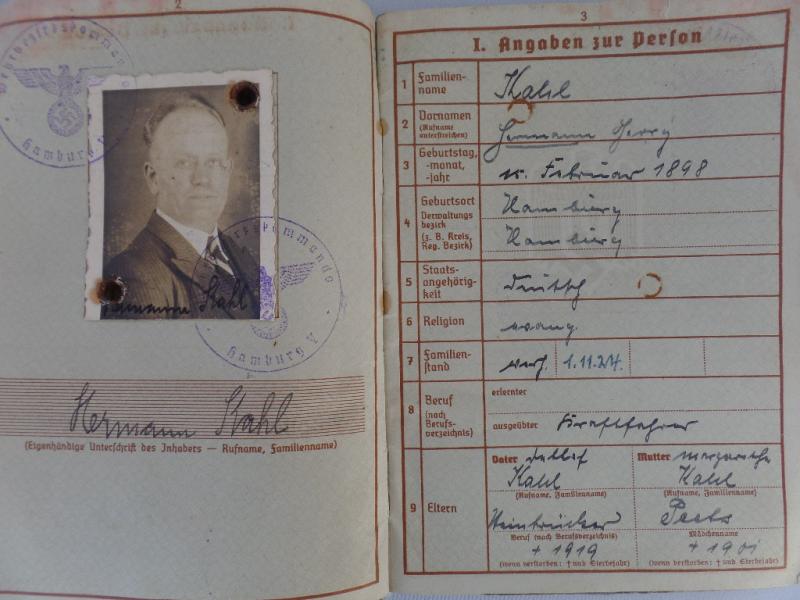 2
Wehrbezirkskommando
Hamburg V
Hermann Kahl
Wehrbezirkskommando
Hamburg V
Hermann Kahl
(Eigenhändige Unterschrift des Inhabers — Rufname, Familienname)
3
I. Angaben zur Person
1 Familien-
name
Kahl
2 Vornamen
(Rufname
unterstreichen)
Hermann Georg
3 Geburtstag,
-monat,
-jahr
Februar 1898
4 Geburtsort
Verwaltungs
bezirk
(z. B. Kreis,
Reg. Bezirk)
Hamburg
Hamburg
5 Staats-
angehörig-
keit
deutsch
6 Religion
evang.
7 Familien-
stand
verh. 1.11.24.
8 Beruf
(nach
Berufs-
verzeichnis)
erlernter
ausgeübter Kraftfahrer
9 Eltern
Vater Detlef
Kahl
(Rufname, Familienname)
Steindrucker
Beruf (nach Berufsverzeichnis)
+ 1919
(wenn verstorben: † und Sterbejahr)
Mutter Margaretha
Kahl
(Rufname, Familienname)
Mädchenname
+ 1901
(wenn verstorben: † und Sterbejahr)